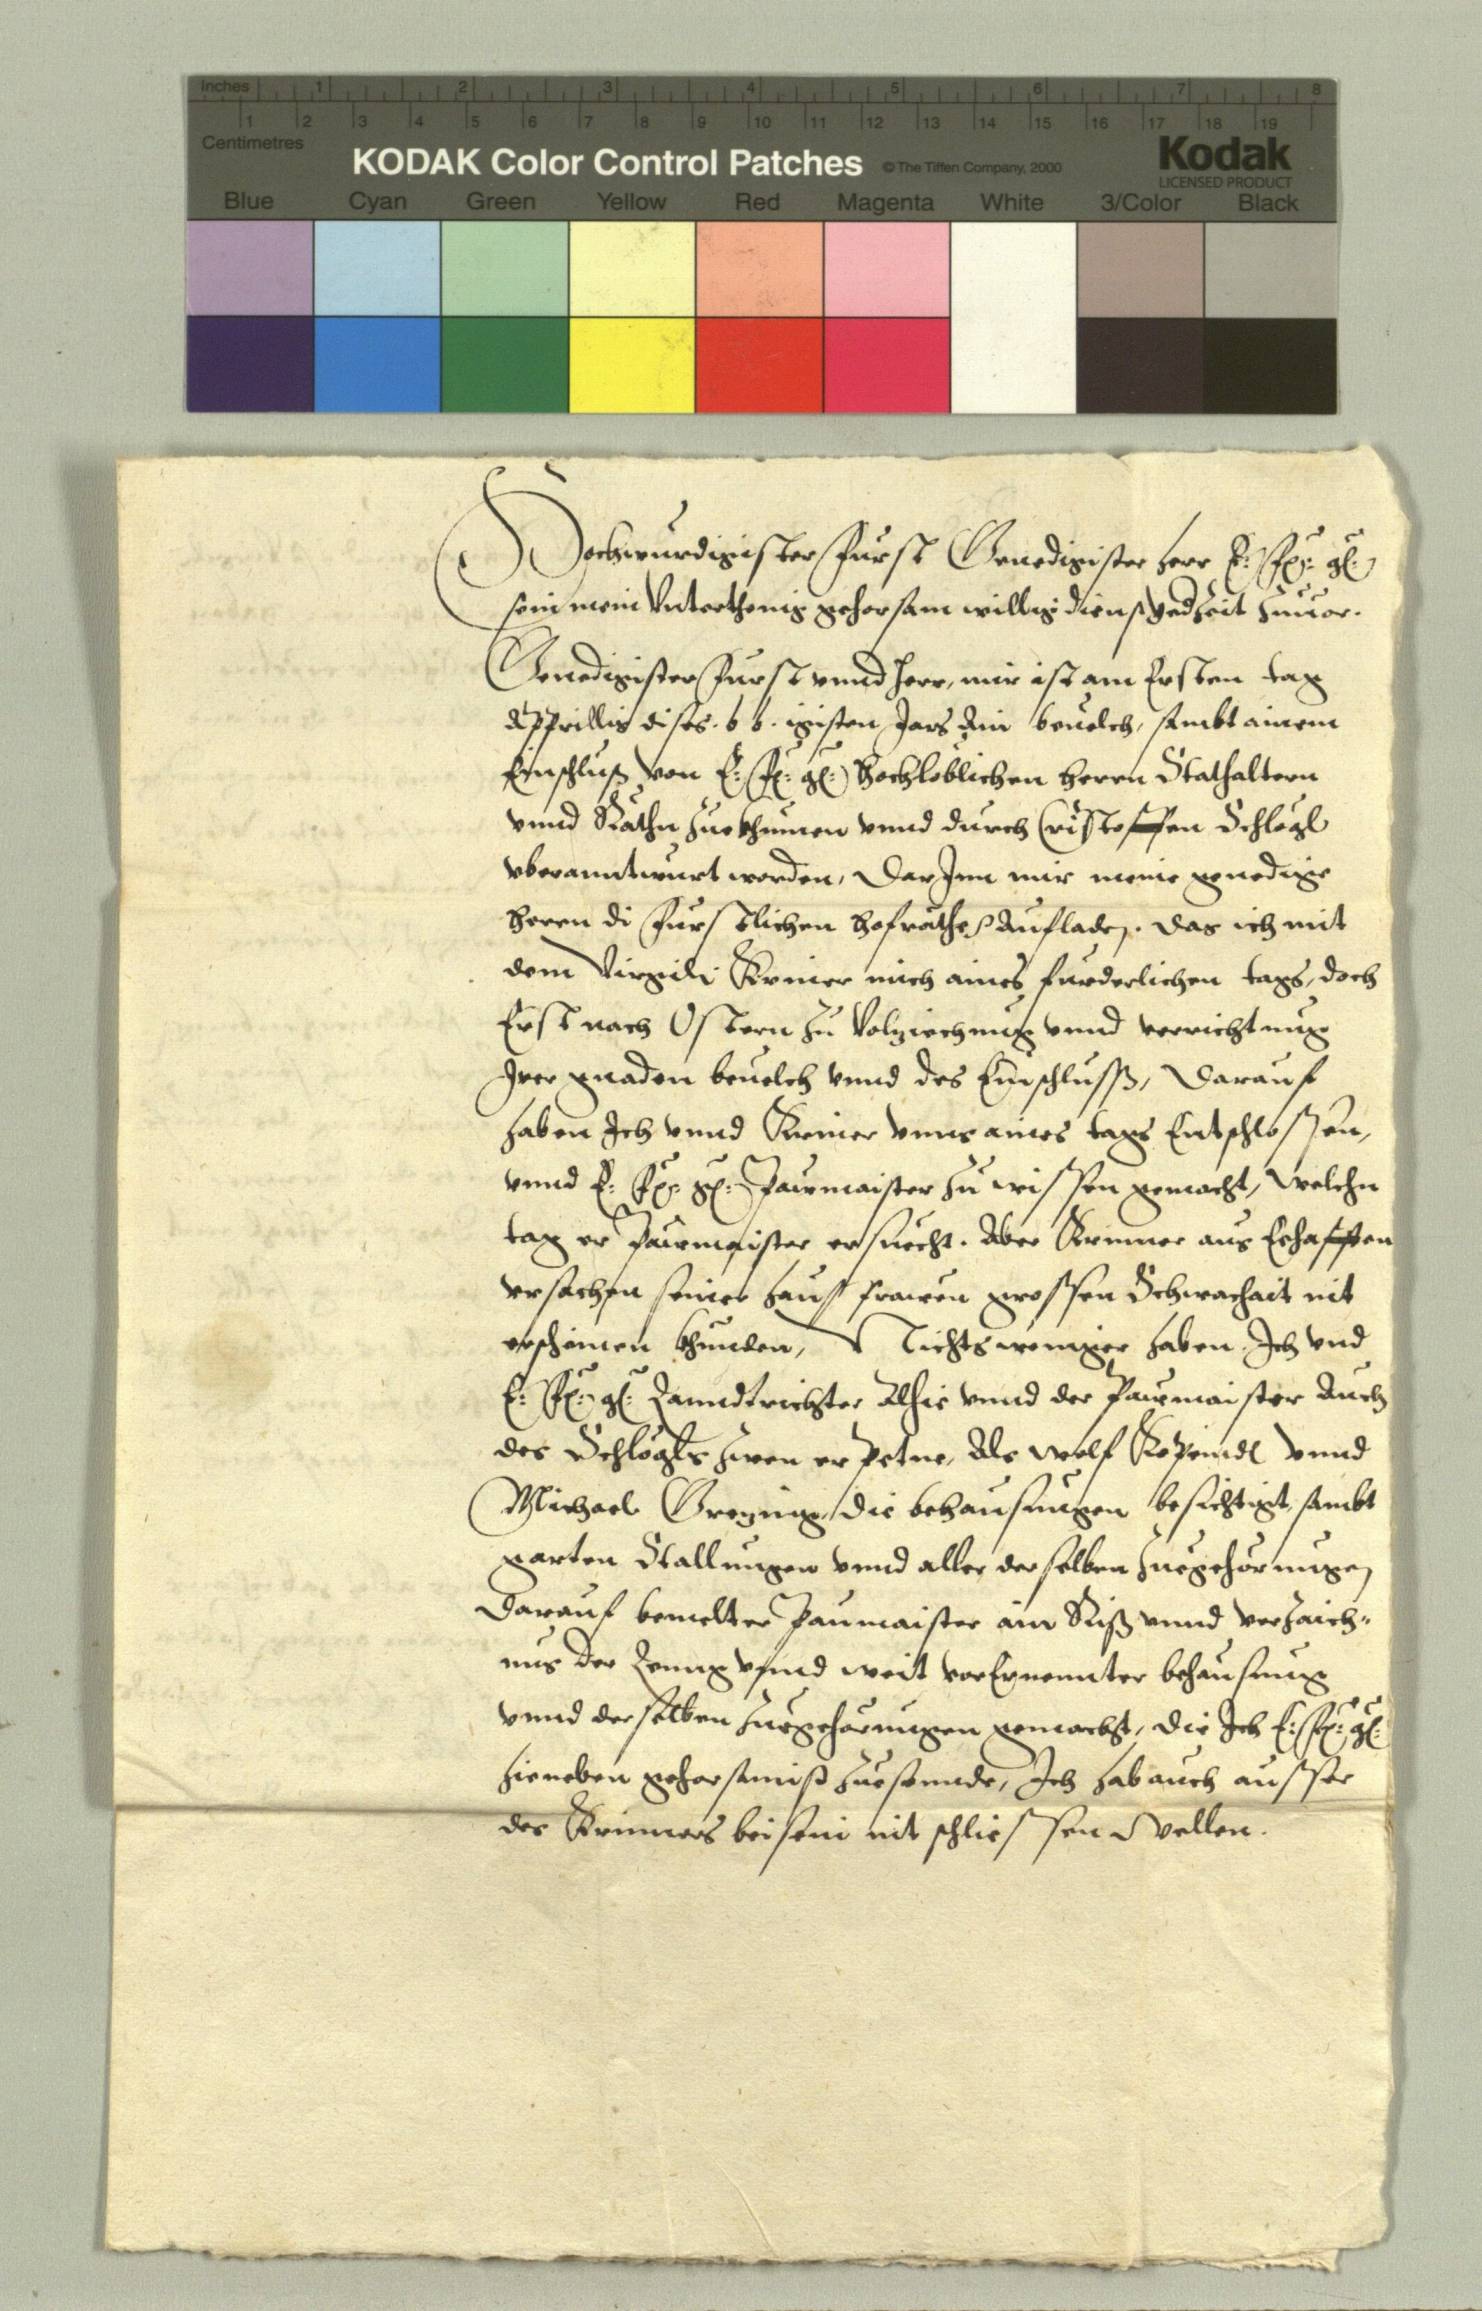 Inches 1 2 3 4 5 6 7 8
1 2 3 4 5 6 7 8 9 10 11 12 13 14 15 16 17 18 19
Centimetres
KODAK Color Control Patches © The Tiffen Company, 2000 Kodak
LICENSED PRODUCT
Blue Cyan Green Yellow Red Magenta White 3/Color Black
Hochwurdigister Furst Genedigister herr E: Fr: gl:
sein mein Vnterthenig gehorsam willig dienst yedZeit Zuuor.
Genedigister Furst vnnd herr, mir ist am Ersten tag
Apprillis dises .66. igisten Jars Ain beuelch, sambt ainem
Einschluß von E: Fr: gl: hochloblichen herrn Stathaltern
vnnd Räthn Zuekhumen vnnd durch Cristoffen Schlögl
vberanntwurt worden, DarJnn mir meine genedige
herrn di Furstlichen hofräthe Aufladen. das ich mit
dem Virgili Krimer mich aines furderlichen tags, doch
Erst nach Ostern Zu Volziechung vnnd verrichtung
Jrer gnaden beuelch vnnd des Einschluss, Darauf
haben Jch vnnd Krimer vnns aines tags Entschlossen,
vnnd E: Fr: gl: Paumaister Zu wissen gemacht, welchn
tag er Paumaister ersuecht. Aber Krimer aus Eehafften
vrsachen seiner hausfrauen grossen Schwachait nit
erscheinen khunden, Nichtsweniger haben Jch vnd
E: Fr: gl: Lanndtrichter Alhie vnnd der Paumaister Auch
des Schlögls Zwen erpetne, Als Wolf vnnd
Michael die behausungen besichtigt, sambt
garten Stallungen vnnd aller derselben Zuegehörungen
Darauf bemelter Paumaister ain Riß vnnd verZaich-
nus der Leng vnnd weit vorErnennter behausung
vnnd derselben Zuegehörungen gemacht, die Jch E: Fr: gl:
hieneben gehorsamist Zuesennde, Jch hab auch ausser
des Krimers beisein nit schliessen wellen.